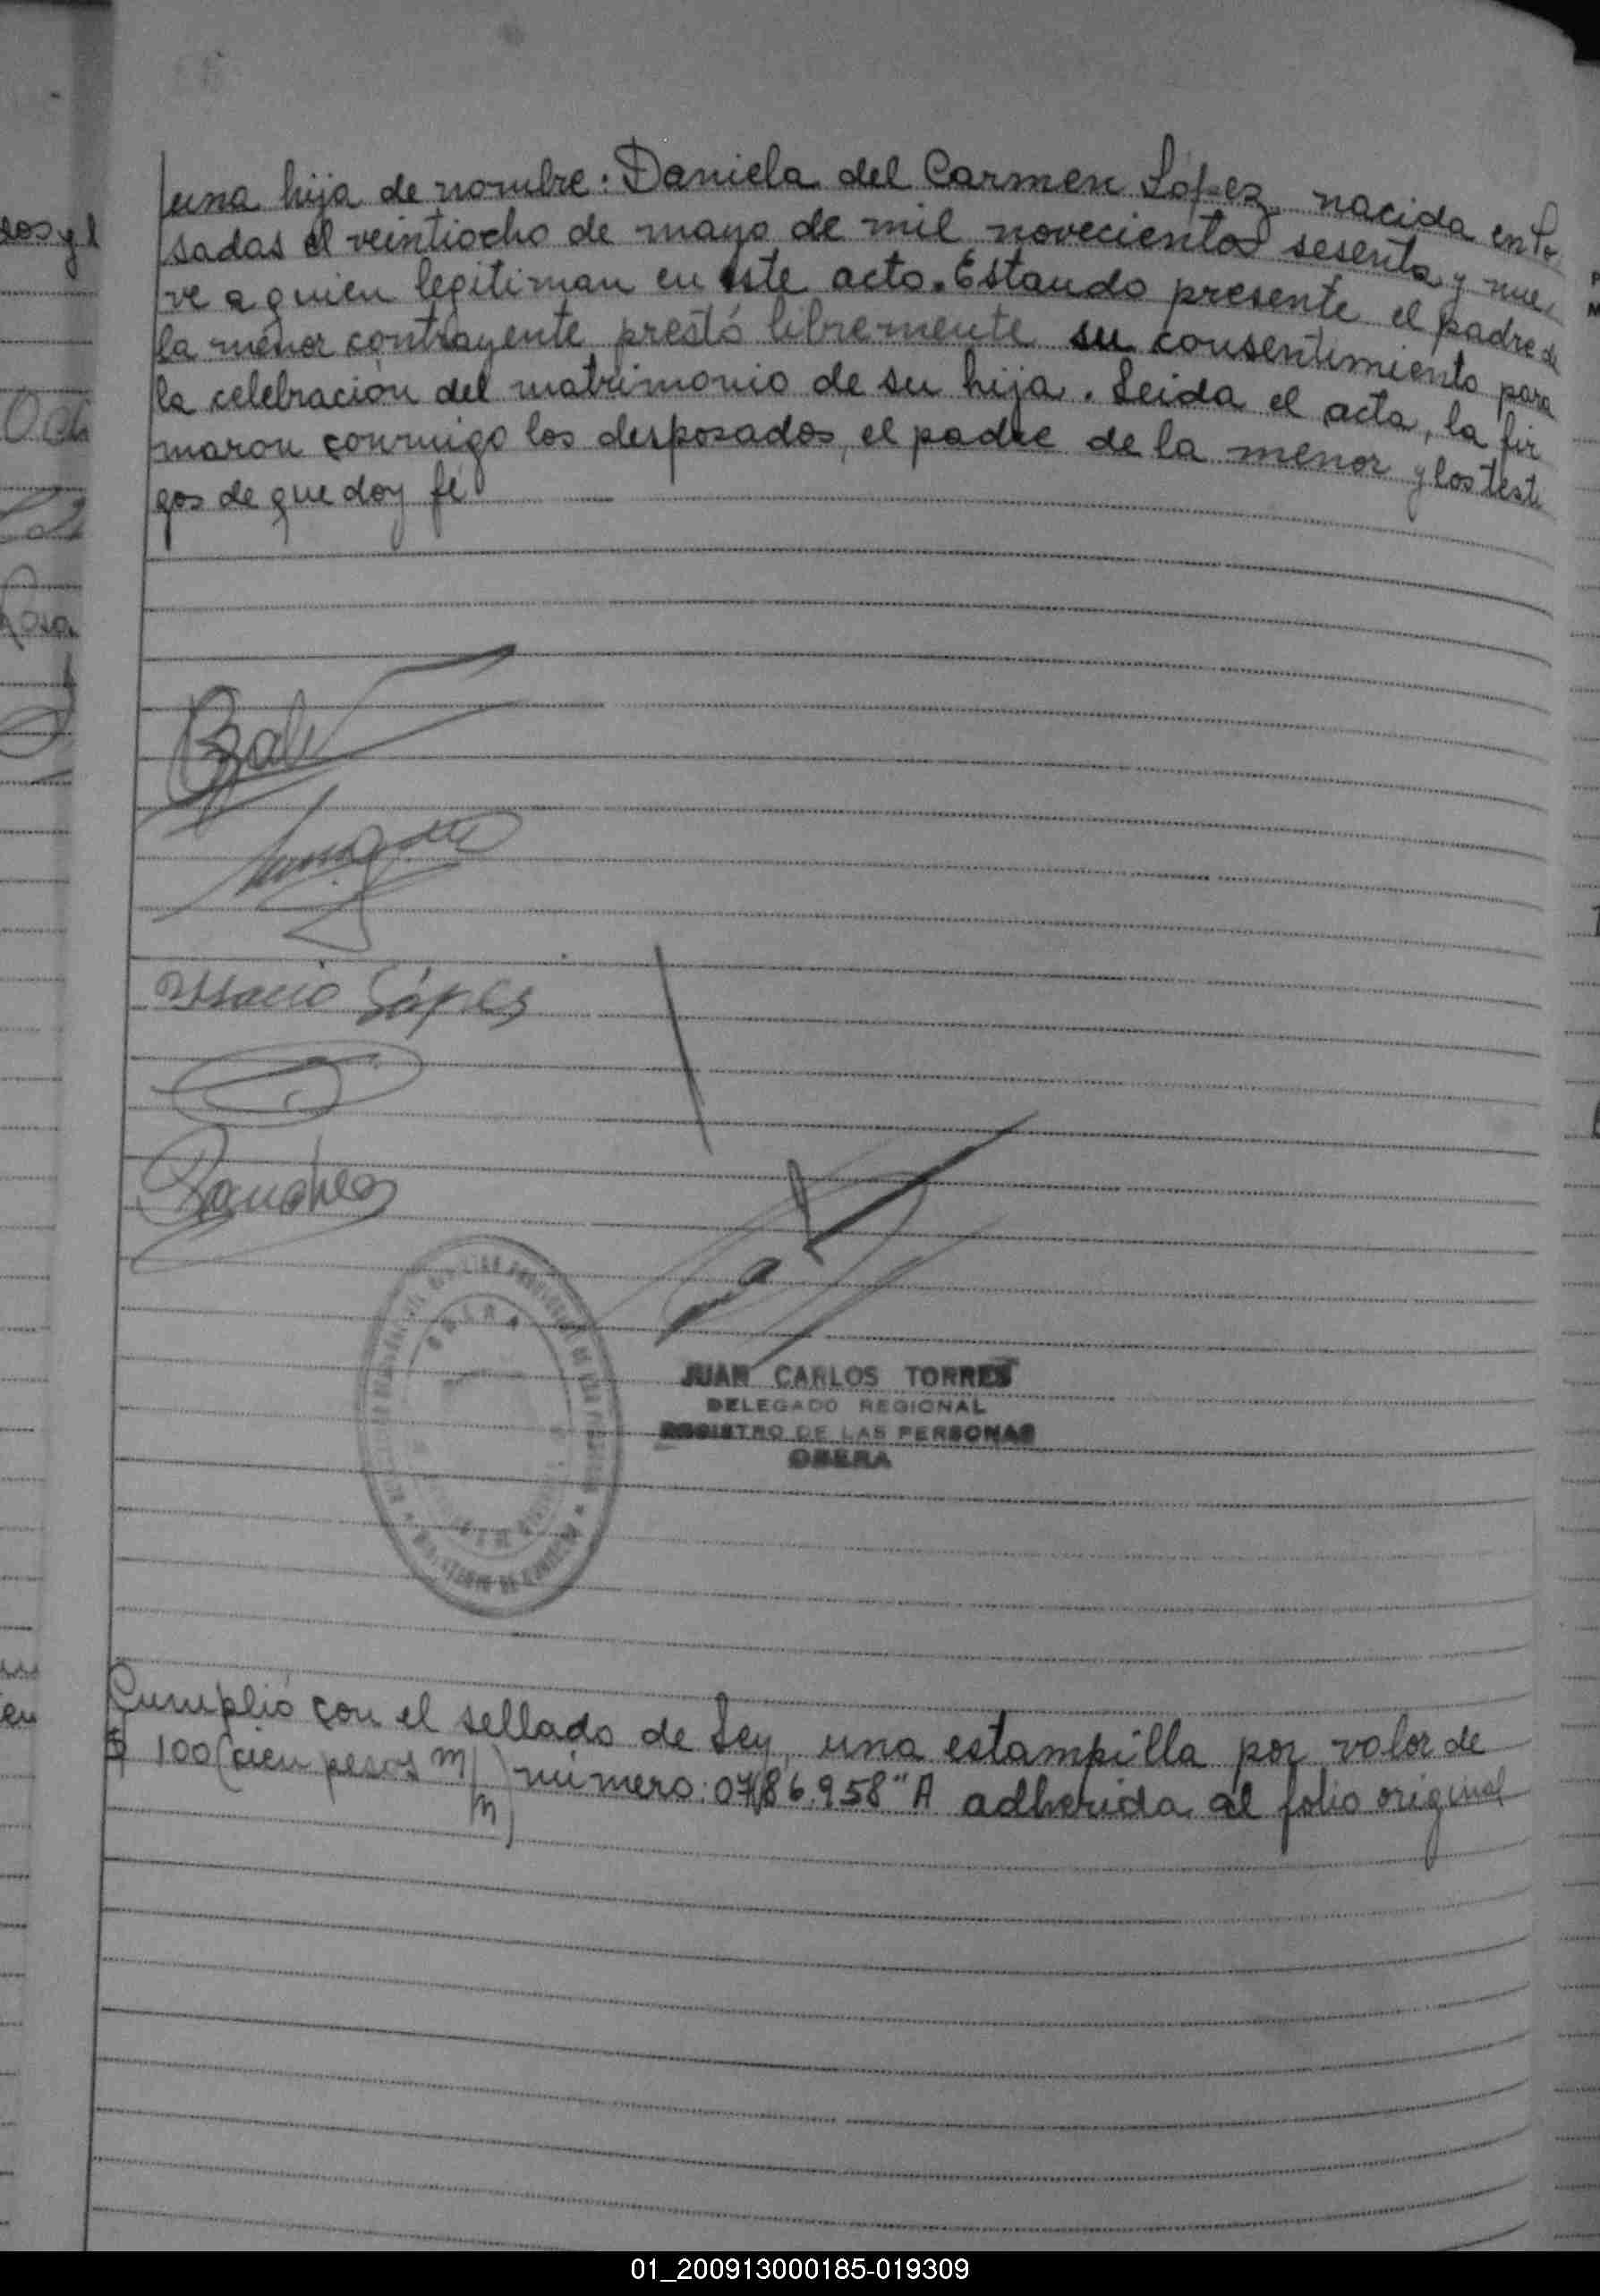 una hija de nombre: Daniela del Carmen López, nacida en Po
sadas el veintiocho de mayo de mil novecientos sesenta y nue
ve a quien legitiman en este acto. Estando presente el padre de
la menor contrayente prestó libremente su consentimiento para
la celebración del matrimonio de su hija. Leida el acta, la fir
maron conmigo los desposados, el padre de la menor y los testi
gos de que doy fé
López
Sanchez
JUAN CARLOS TORRES
DELEGADO REGIONAL
REGISTRO DE LAS PERSONAS
OBERA
Cumplió con el sellado de Ley, una estampilla por valor de
$ 100 (cien pesos m/n) número: 0786.958" A adherida al folio original
01_200913000185-019309